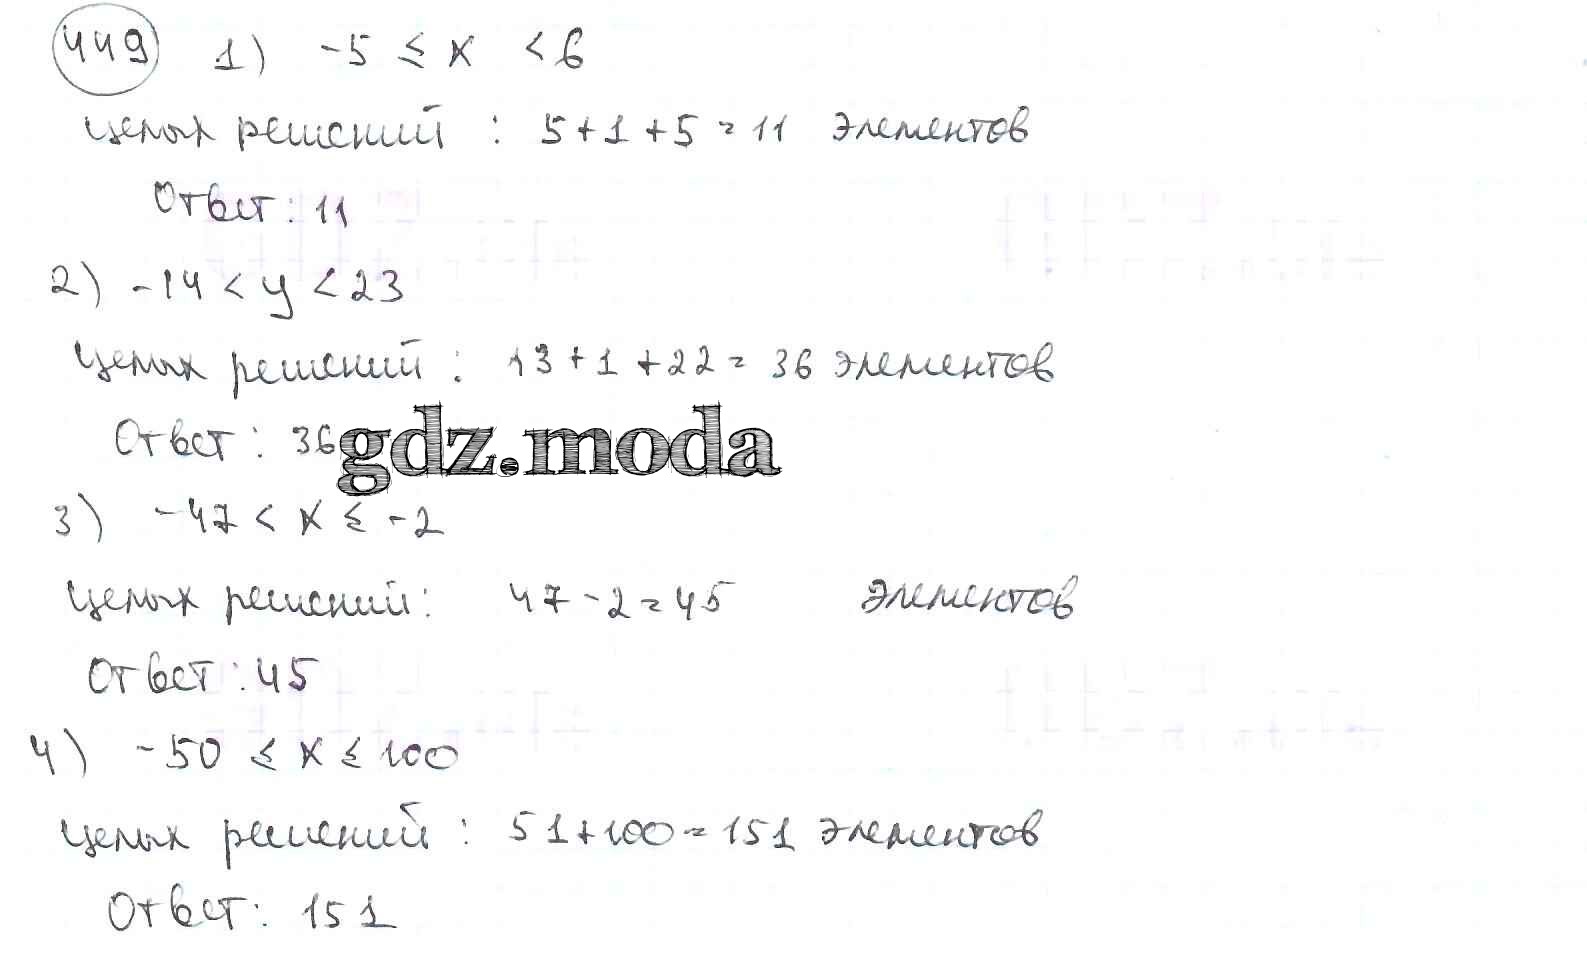 449 1) -5 ≤ x < 6
целых решений : 5+1+5=11 элементов
Ответ: 11
2) -14 < y < 23
целых решений : 13+1+22=36 элементов
Ответ: 36
gdz.moda
3) -47 < x ≤ -2
целых решений: 47-2=45 элементов
Ответ: 45
4) -50 ≤ x ≤ 100
целых решений : 51+100=151 элементов
Ответ: 151